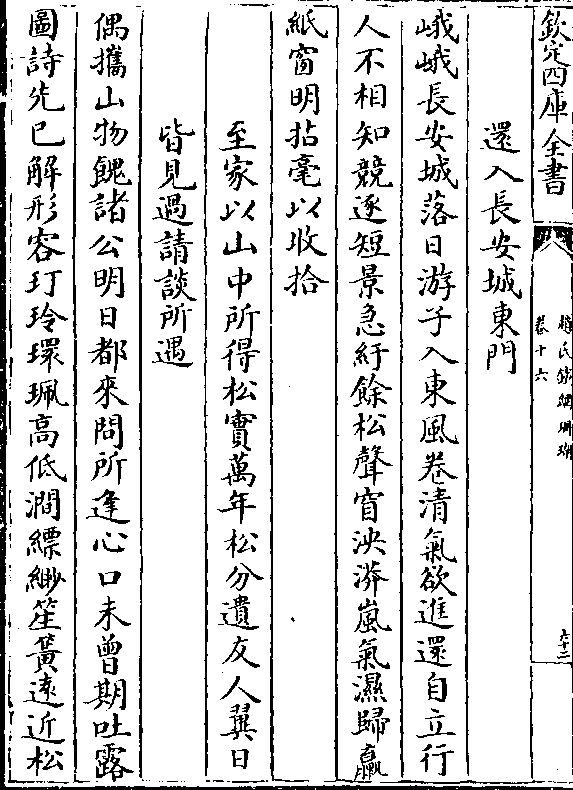 欽定四庫全書
趙氏鐵網珊瑚
卷十六
六十二
還入長安城東門
峨峨長安城落日游子入東風卷清氣欲進還自立行
人不相知競逐短景急紆餘松聲窅泱漭嵐氣濕歸羸
紙窗明拈毫以收拾
至家以山中所得松實萬年松分遺友人翼日
皆見過請談所遇
偶攜山物餽諸公明日都來問所逢心口未曾期吐露
圖詩先已解形容玎玲環珮高低澗縹緲笙簧遠近松